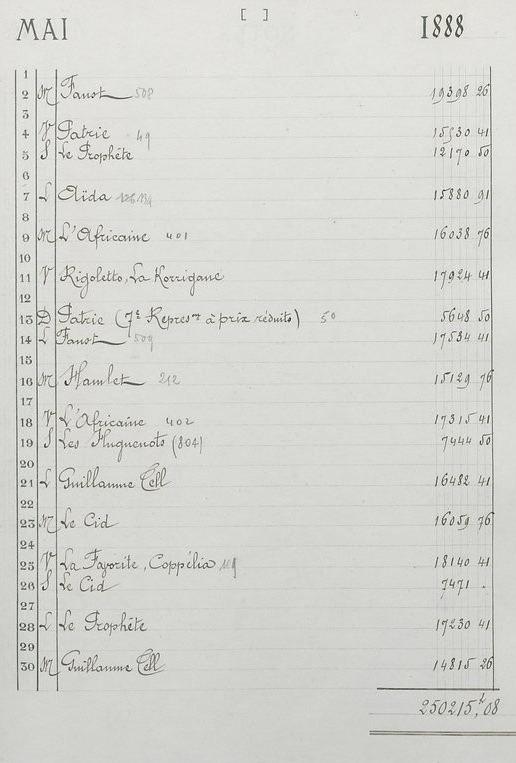 MAI [ ] 1888
1
2 M Faust 508 19398 26
3
4 V Patrie 49 15530 41
5 S Le Prophète 12170 50
6
7 L Aïda 15880 91
8
9 M L'Africaine 401 16038 76
10
11 V Rigoletto, La Korrigane 17924 41
12
13 D Patrie (7e Represon à prix réduits) 50 5648 50
14 L Faust 509 17534 41
15
16 M Hamlet 212 15129 76
17
18 V L'Africaine 402 17315 41
19 S Les Huguenots (804) 7444 50
20
21 L Guillaume Tell 16482 41
22
23 M Le Cid 16059 76
24
25 V La Favorite, Coppélia 18140 41
26 S Le Cid 7471 .
27
28 L Le Prophète 17230 41
29
30 M Guillaume Tell 14815 26
250215,08